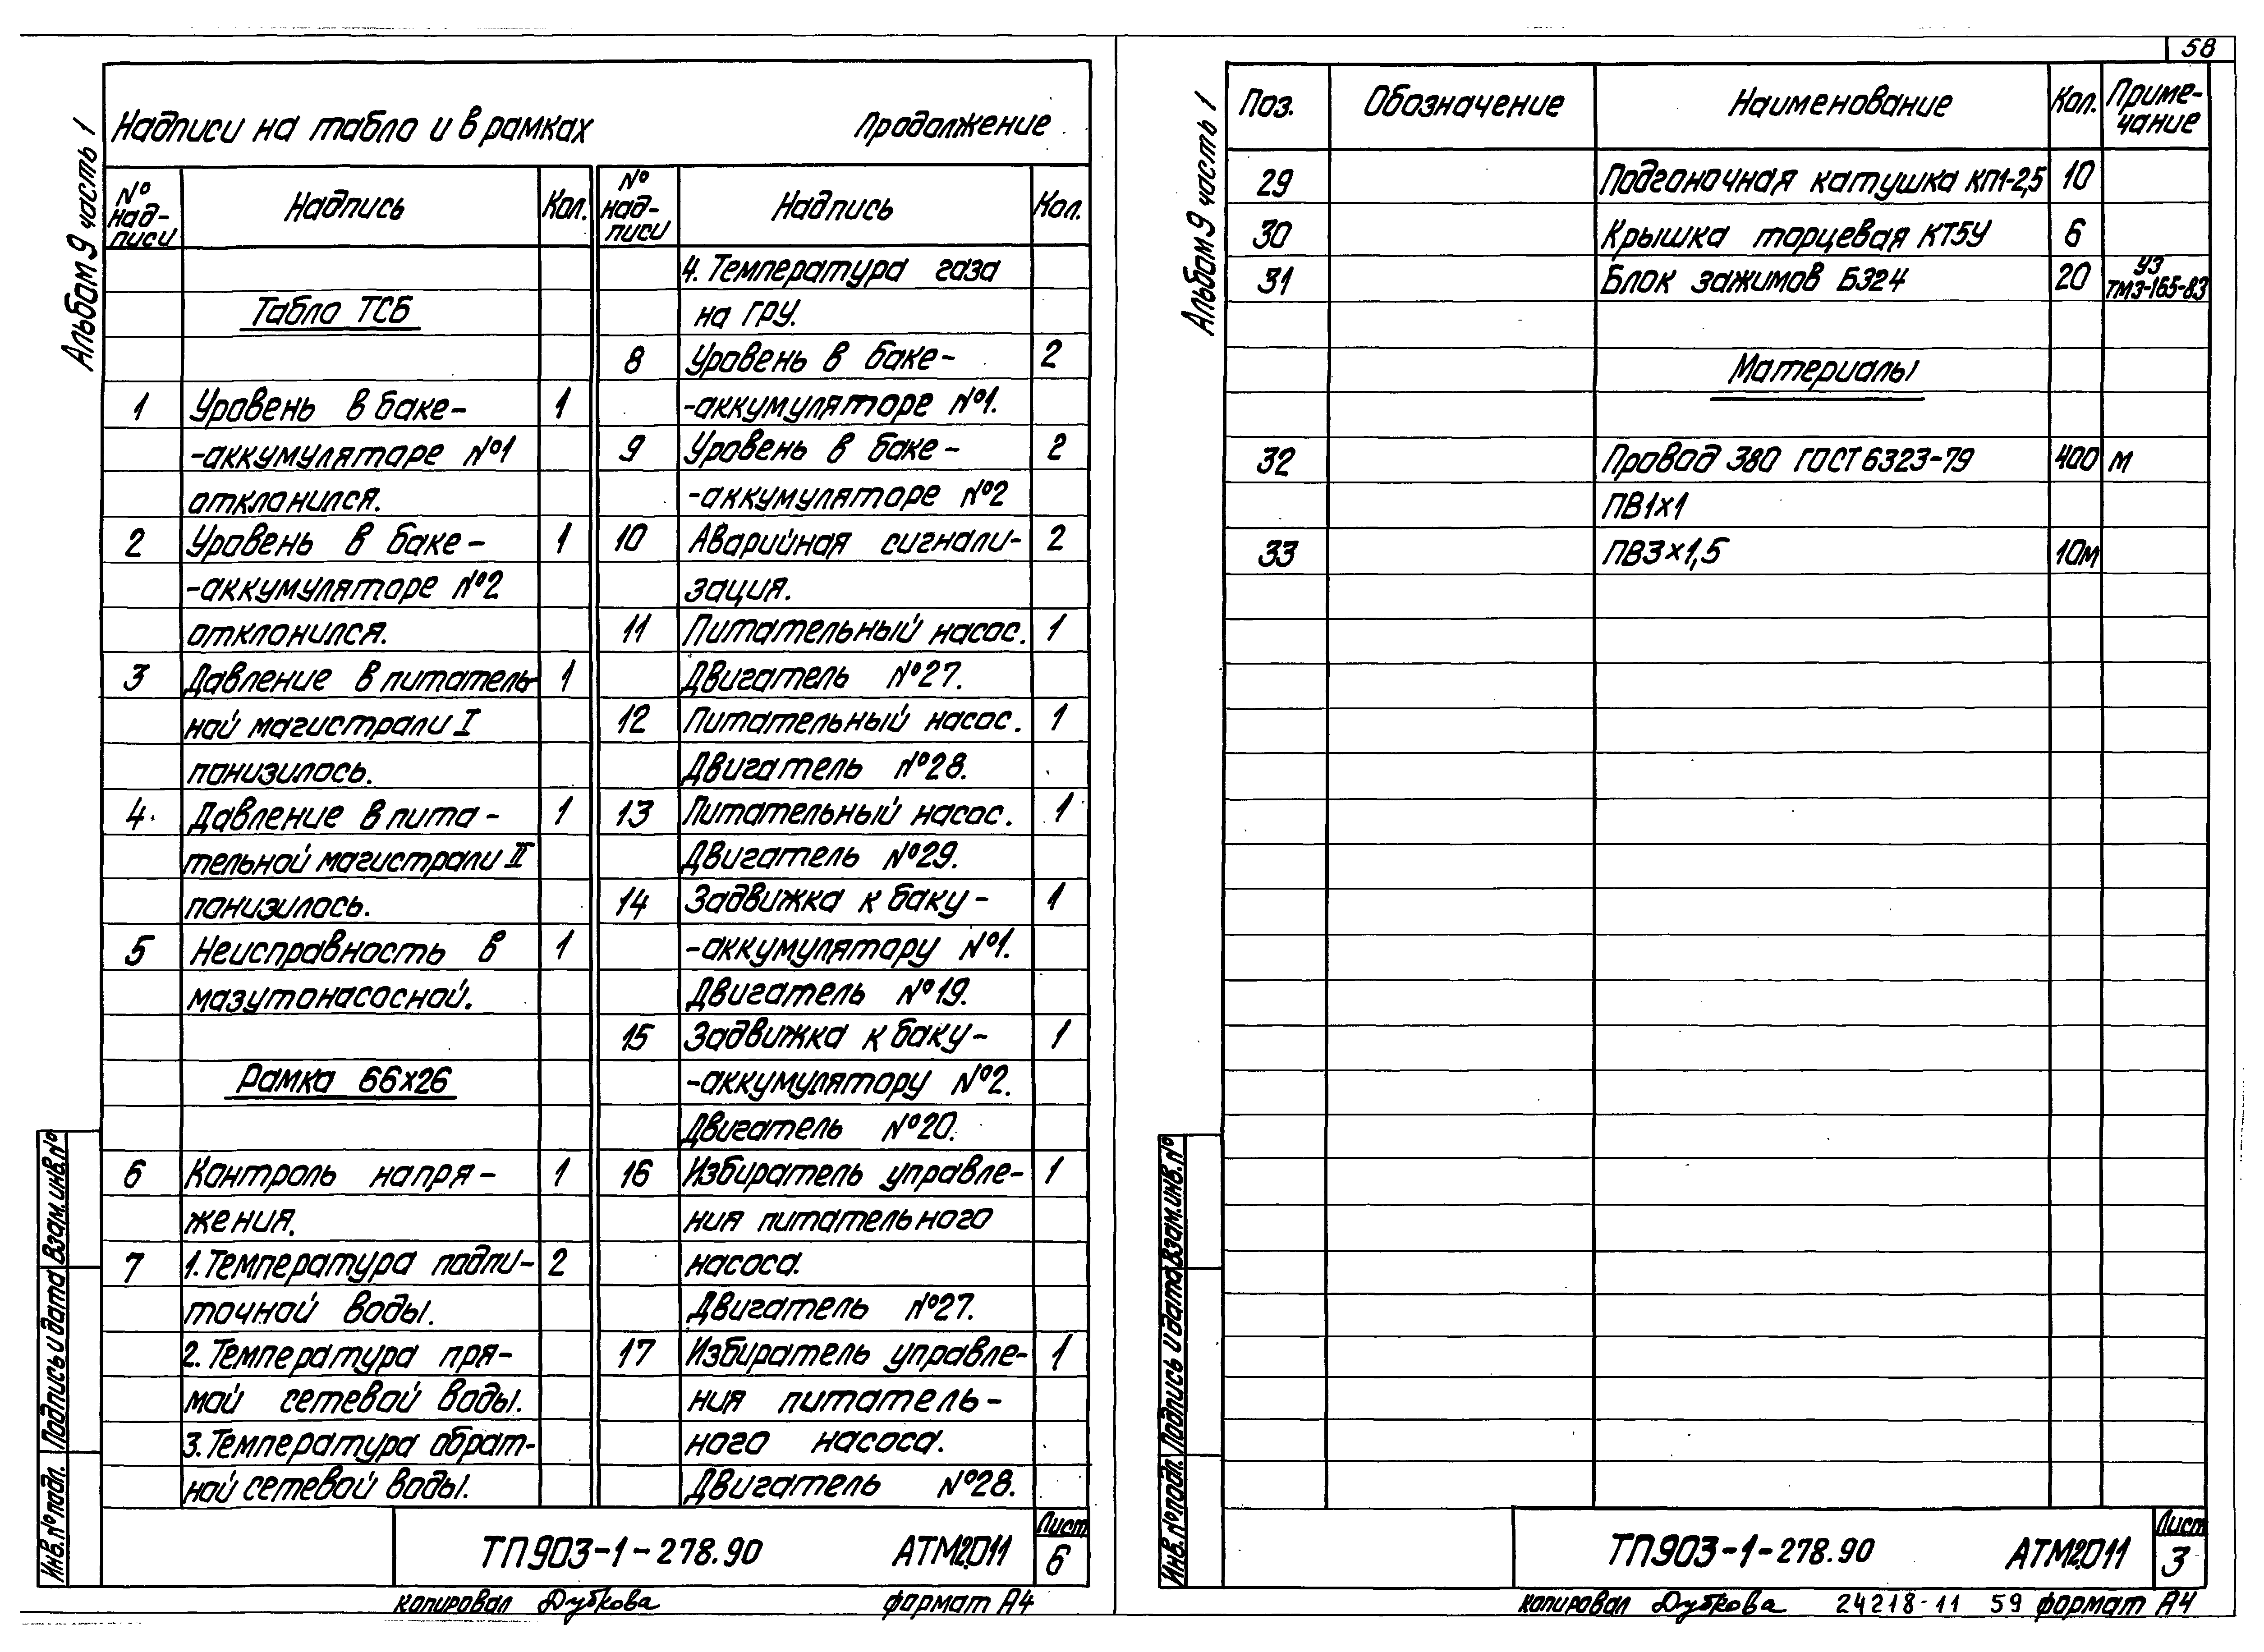 58
Альбом 9 часть 1
Надписи на табло и в рамках Продолжение
№ надписи Надпись Кол. № надписи Надпись Кол.
Табло ТСБ
1 Уровень в баке- 1
-аккумуляторе №1
отклонился.
2 Уровень в баке- 1
-аккумуляторе №2
отклонился.
3 Давление в питатель- 1
ной магистрали I
понизилось.
4 Давление в пита- 1
тельной магистрали II
понизилось.
5 Неисправность в 1
мазутонасосной.
Рамка 66х26
6 Контроль напря- 1
жения.
7 1. Температура подпи- 2
точной воды.
2. Температура пря-
мой сетевой воды.
3. Температура обрат-
ной сетевой воды.
4. Температура газа
на ГРУ.
8 Уровень в баке- 2
-аккумуляторе №1.
9 Уровень в баке- 2
-аккумуляторе №2
10 Аварийная сигнали- 2
зация.
11 Питательный насос. 1
Двигатель №27.
12 Питательный насос. 1
Двигатель №28.
13 Питательный насос. 1
Двигатель №29.
14 Задвижка к баку- 1
-аккумулятору №1.
Двигатель №19.
15 Задвижка к баку- 1
-аккумулятору №2.
Двигатель №20.
16 Избиратель управле- 1
ния питательного
насоса.
Двигатель №27.
17 Избиратель управле- 1
ния питатель-
ного насоса.
Двигатель №28.
Взам. инв. №
Подпись и дата
Инв. № подл.
ТП 903-1-278.90 АТМ2.011 Лист 6
копировал Дубкова формат А4
Альбом 9 часть 1
Поз. Обозначение Наименование Кол. Приме-
чание
29 Подгоночная катушка КП1-2,5 10
30 Крышка торцевая КТ5У 6
31 Блок зажимов Б324 20 У3
ТМ3-165-83
Материалы
32 Провод 380 ГОСТ 6323-79 400 м
ПВ1х1
33 ПВ3х1,5 10м
Взам. инв. №
Подпись и дата
Инв. № подл.
ТП 903-1-278.90 АТМ2.011 Лист 3
копировал Дубкова 24218-11 59 формат А4